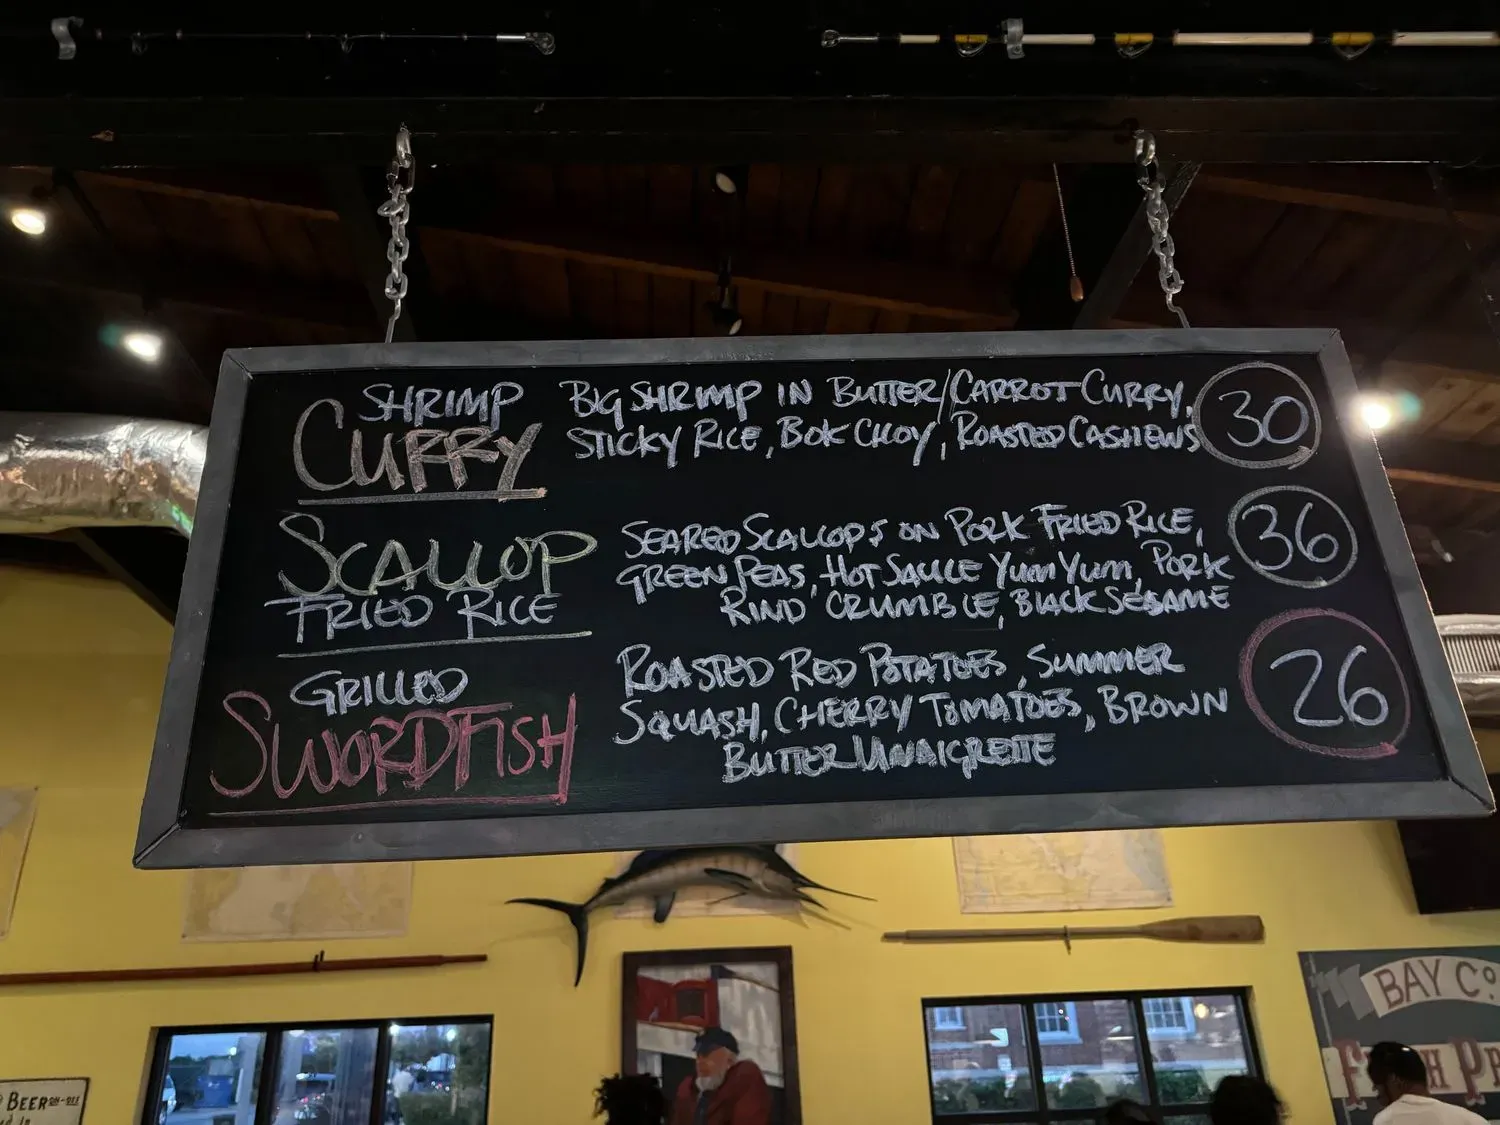 SHRIMP
CURRY
BIG SHRIMP IN BUTTER/CARROT CURRY,
STICKY RICE, BOK CHOY, ROASTED CASHEWS
30
SCALLOP
FRIED RICE
SEARED SCALLOPS ON PORK FRIED RICE,
GREEN PEAS, HOT SAUCE YUM YUM, PORK
RIND CRUMBLE, BLACK SESAME
36
GRILLED
SWORDFISH
ROASTED RED POTATOES, SUMMER
SQUASH, CHERRY TOMATOES, BROWN
BUTTER VINAIGRETTE
26
BAY Co
BEER